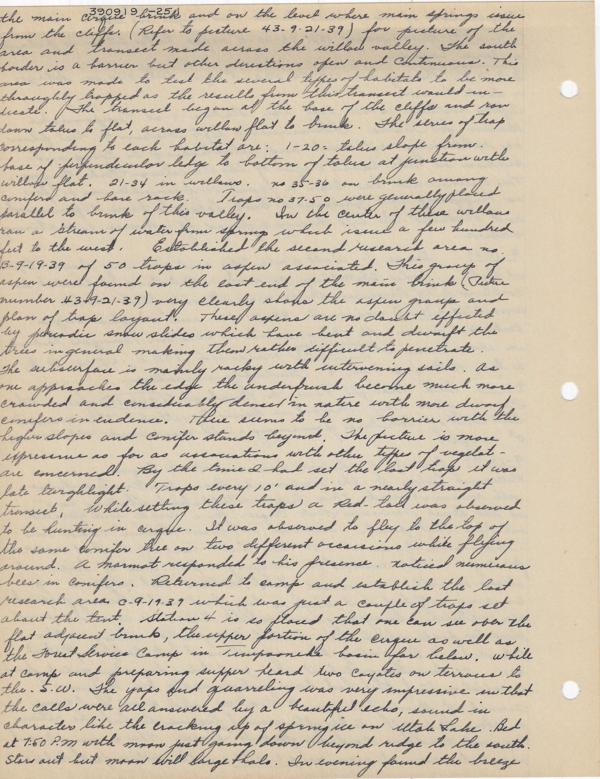 390919 (-25)
the main cirque brink and on the level where main springs issue
from the cliffs. (Refer to picture 43-9-21-39) for picture of the
area and transect made across the willow valley. The south
border is a barrier but other directions open and continuous. This
area was made to test the several types of habitats to be more
throughly trapped as the results from this transect would in-
dicate. The transect began at the base of the cliffs and ran
down talus to flat, across willow flat to brink. The series of trap
corresponding to each habitat are: 1-20 = talus slope from
base of perpendicular ledge to bottom of talus at junction with
willow flat. 21-34 in willows. no 35-36 on brink among
conifers and bare rock. Traps no 37-50 were generally placed
parallel to brink of this valley. In the center of these willows
ran a stream of water from spring which issue a few hundred
feet to the west. Established the second research area no.
B-9-19-39 of 50 traps in aspen associated. This group of
aspen were found on the east end of the main brink (Picture
number 43-9-21-39) very clearly shows the aspen group and
plan of trap layout. These aspens are no doubt effected
by periodic snow slides which have bent and dwarft the
trees in general making them rather difficult to penetrate.
The subsurface is mainly rocky with intervening soils. As
one approaches the edge the underbrush become much more
crowded and considerably denser in nature with more dwarf
conifers in evidence. There seems to be no barrier with the
higher slopes and conifer stands beyond. The picture is more
expressive as far as associations with other types of vegetat-
are concerned. By the time I had set the last trap it was
late twighlight. Traps every 10' and in a nearly straight
transect. While setting these traps a Red-tail was observed
to be hunting in cirque. It was observed to fley to the top of
the same conifer tree on two different occassions while flying
around. A marmot responded to his presence. noticed numerous
bees in conifers. Returned to camp and establish the last
research area C-9-19-39 which was just a couple of traps set
about the tent. Station 4 is so placed that one can see over the
flat adjacent brink, the upper portion of the cirque as well as
the Forest Service Camp in Timpanooke basin far below. While
at camp and preparing supper heard two coyotes on terraces to
the S.W. The yaps and quarreling was very impressive in that
the calls were all answered by a beautiful echo, sound in
character like the cracking up of spring ice on Utah Lake. Bed
at 7:50 P.M with moon just going down beyond ridge to the south.
Stars out but moon still large halo. In evening found the breeze